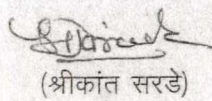 (श्रीकांत सरडे)